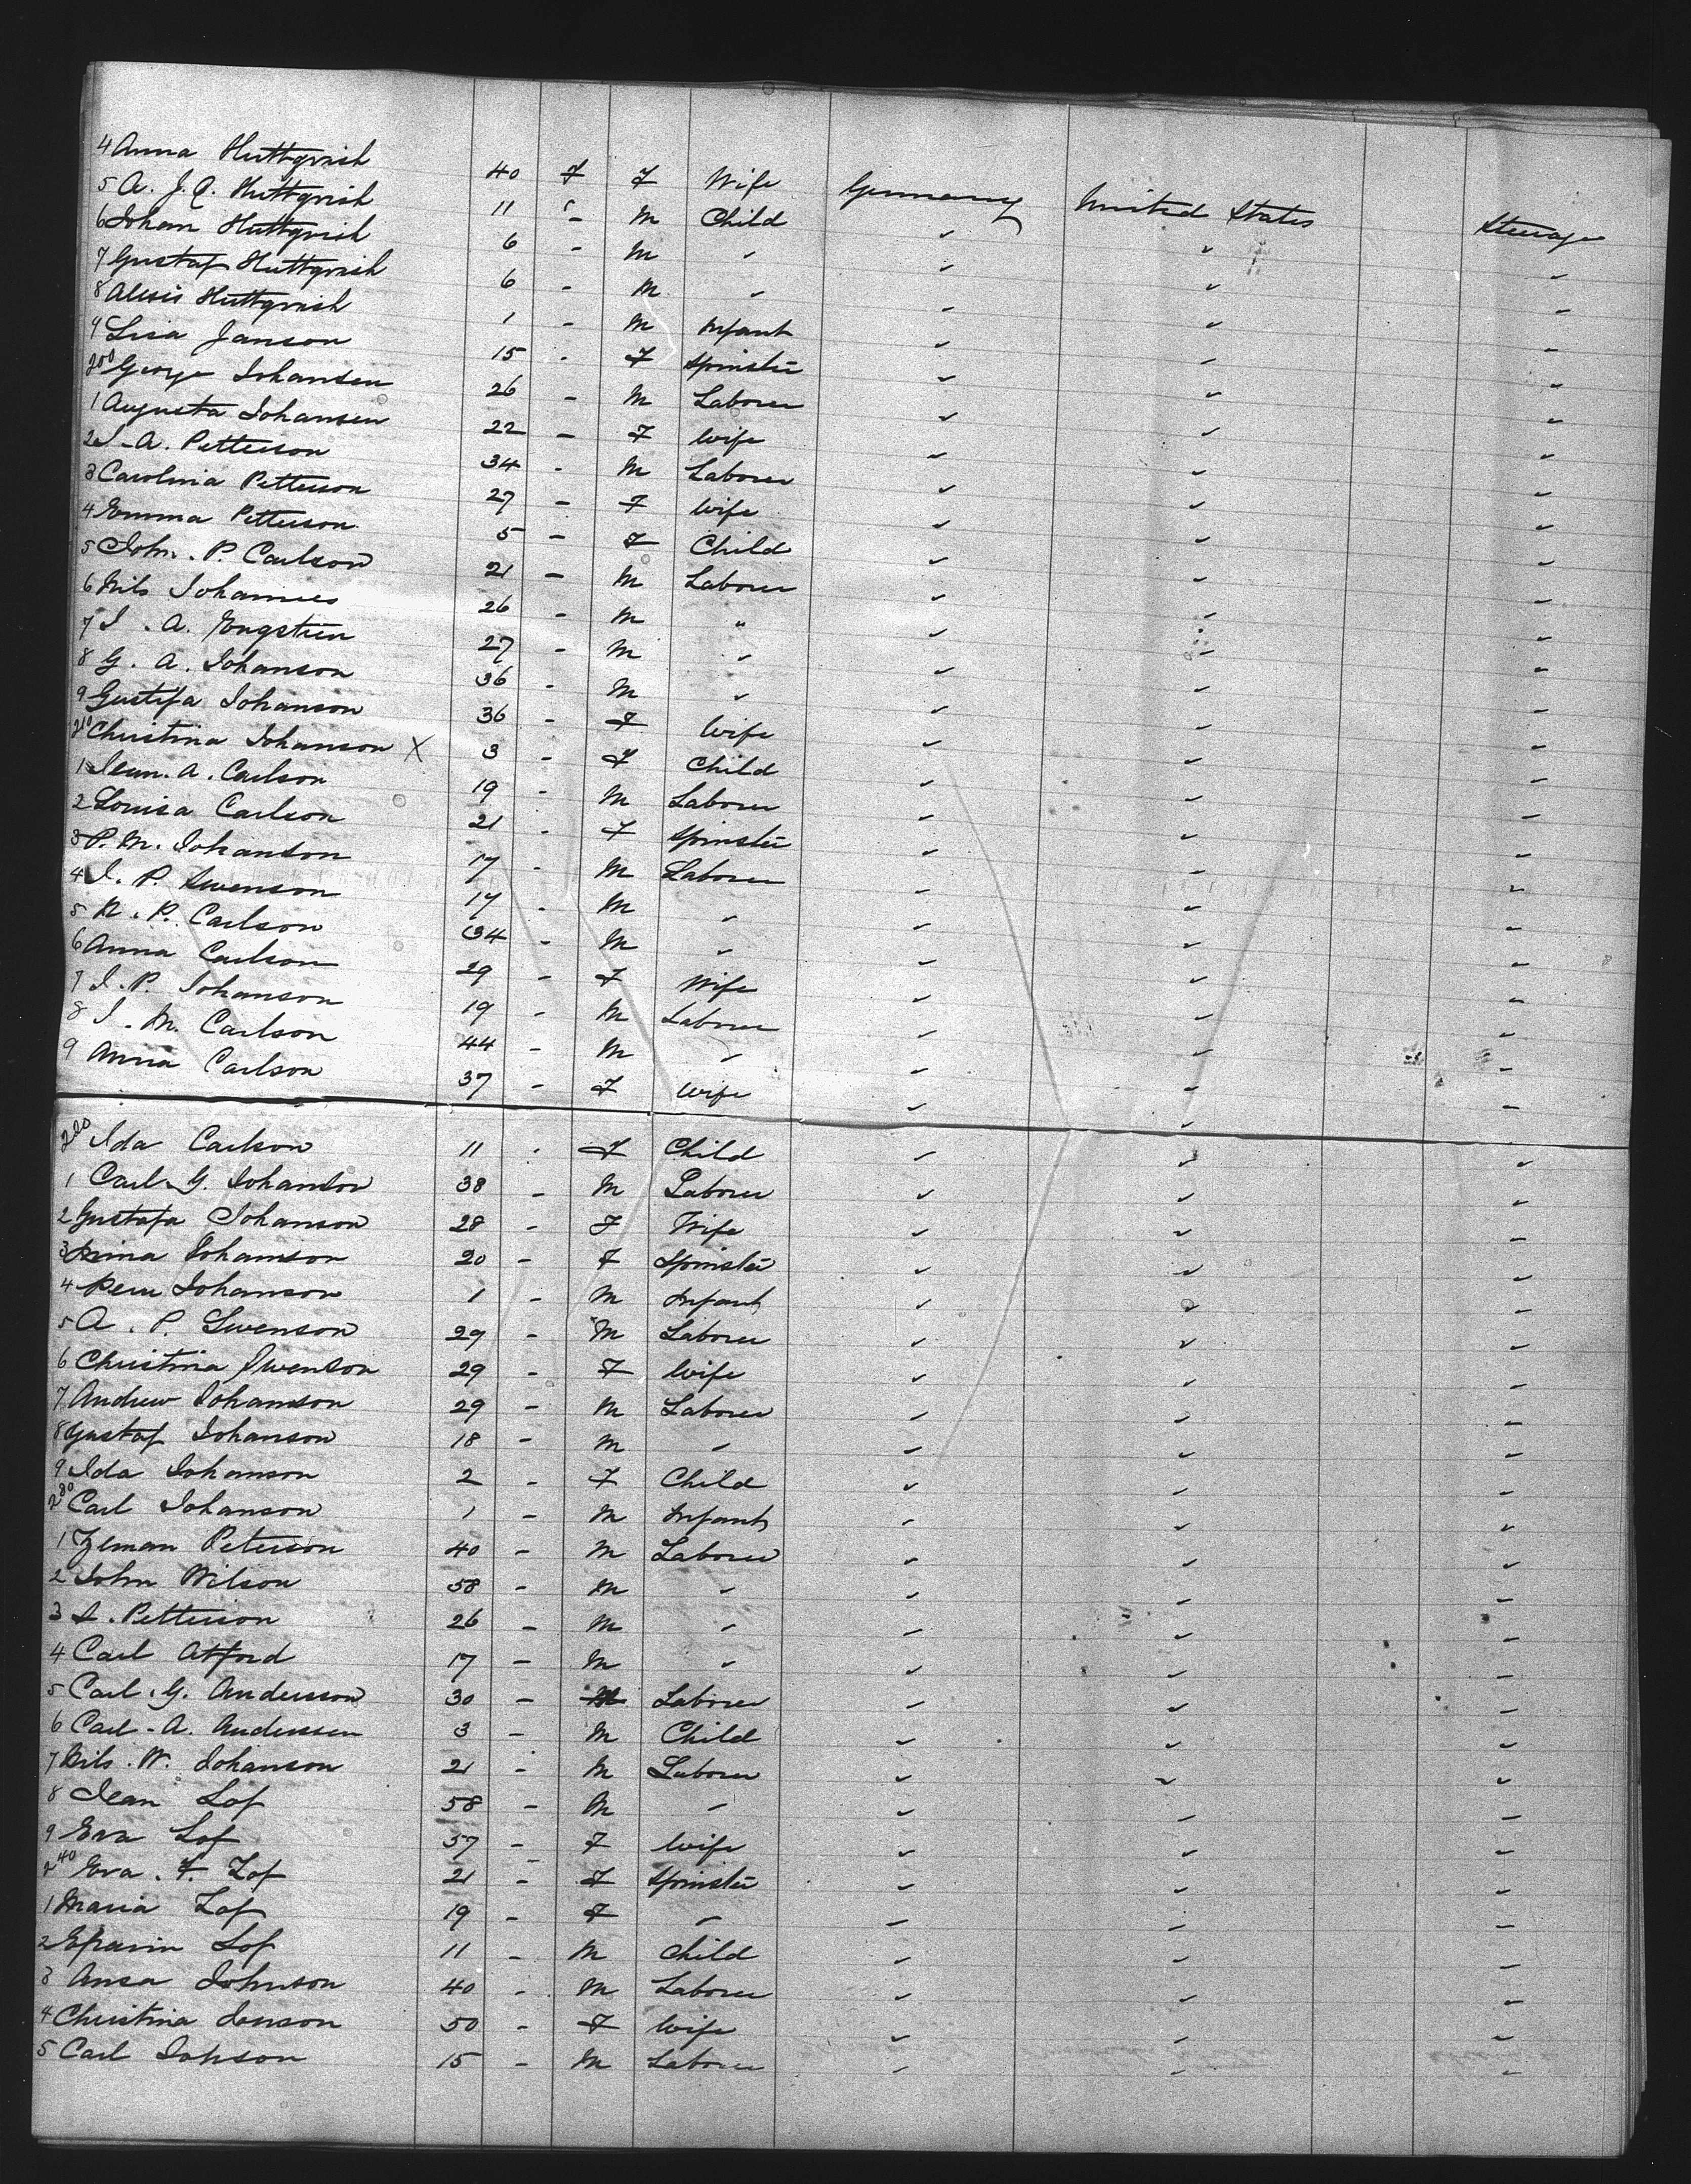 4 Anna Huttqvish 40 F F Wife Germany United States Steerage
5 A. J. A. Huttqvish 11 " - M Child " " "
6 Johan Huttqvish 6 - M " " " "
7 Gustaf Huttqvish 6 - M " " " "
8 Huttqvish 1 - M Infant " " "
9 Lisa Janson 15 - F Spinster " " "
200 George Johansen 26 - M Laborer " " "
1 Augusta Johansen 22 - F Wife " " "
2 J - A. Petterson 34 - M Laborer " " "
3 Carolina Petterson 27 - F Wife " " "
4 Emma Petterson 5 - F Child " " "
5 John. P. Carlson 21 - M Laborer " " "
6 Nils Johannes 26 - M " " " "
7 J. A. Engstrin 27 - M " " " "
8 G. A. Johanson 36 - M " " " "
9 Gustifa Johanson 36 - F Wife " " "
210 Christina Johanson X 3 - F Child " " "
1 A. Carlson 19 - M Laborer " " "
2 Louisa Carlson 21 - F Spinster " " "
3 P. M. Johanson 17 - M Laborer " " "
4 J. P. Swenson 17 - M " " " "
5 N. P. Carlson 34 - M " " " "
6 Anna Carlson 29 - F Wife " " "
7 J. P. Johanson 19 - M Laborer " " "
8 J. M. Carlson 44 - M " " " "
9 Anna Carlson 37 - F Wife " " "
220 Ida Carlson 11 - F Child " " "
1 Carl G. Johanson 38 - M Laborer " " "
2 Gustafa Johanson 28 - F Wife " " "
3 Johanson 20 - F Spinster " " "
4 Johanson 1 - M Infant " " "
5 A. P. Swenson 29 - M Laborer " " "
6 Christina Swenson 29 - F Wife " " "
7 Andrew Johanson 29 - M Laborer " " "
8 Gustaf Johanson 18 - M " " " "
9 Ida Johanson 2 - F Child " " "
230 Carl Johanson 1 - M Infant " " "
1 Peterson 40 - M Laborer " " "
2 John Wilson 58 - M " " " "
3 Petterson 26 - M " " " "
4 Carl Atford 17 - M " " " "
5 Carl. G. Andersson 30 - M Laborer " " "
6 Carl - A. Anderssen 3 - M Child " " "
7 Nils. W. Johanson 21 - M Laborer " " "
8 Jean Lof 58 - M " " " "
9 Eva Lof 57 - F Wife " " "
240 Eva. F. Lof 21 - F Spinster " " "
1 Maria Lof 19 - F " " " "
2 Lof 11 - M Child " " "
3 Johnson 40 - M Laborer " " "
4 Christina 50 - F Wife " " "
5 Carl 15 - M Laborer " " "